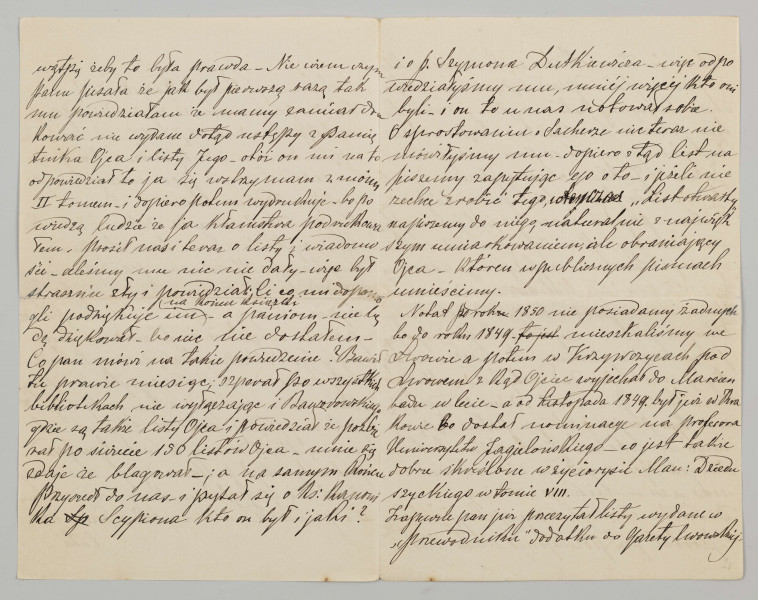 wątpię żeby to była prawda – Nie wiem czym
panu pisała że jak był pierwszą razą tak
mu powiedziałam że mamy zamiar dru
kować nie wydane dotąd ustępy z Pamię
tnika Ojca i listy Jego – otóż on mi na to
odpowiedział to ja się wstrzymam z moim
II tomem – i dopiero potem wydrukuję – bo po
wiedzą ludzie że ja kłamstwa podrukowa
łem. Prosił nas i teraz o listy i wiadomo
ści – aleśmy mu nic nie dały – więc był
strasznie zły i powiedział, ci co mi dopomo
na końcu książki
gli podziękuję im – a paniom – nie bę
dę dziękował – bo nic nie dostałem –
Co pan mówi na takie powiedzenie? Bawił
tu prawie miesiąc; szperał po wszystkich
bibliotekach nie wyłączając i Baworowskiego
gdzie są także listy Ojca i powiedział że pozbie
rał po świecie 130 listów Ojca – mnie się
zdaje że blagował – ; a na samym końcu
przyszedł do nas – i pytał się o Ks:
ka Scypiona kto on był i jaki?
i o p. Szymona Dutkiewicza – więc odpo
wiedziałyśmy mu, mniej więcej kto oni
byli – i on to u nas notował sobie.
O sprostowaniem o Sacherze nic teraz nie
mówiłyśmy mu – dopiero stąd list na
piszemy zapytując go o to – i jeżeli nie
zechce zrobić tego, „List otwarty
napiszemy do niego, naturalnie z najwięk
szym umiarkowaniem, ale obraniający
Ojca – któren w publicznych pismach
umieścimy.
Notat po roku 1850 nie posiadamy żadnych
bo do roku 1849 to jest mieszkaliśmy we
Lwowie a potem w Krzywczycach pod
Lwowem z kąd Ojciec wyjechał do Marien
badu w lecie – a od listopada 1849. był już w Kra
kowie bo dostał nominacyę na profesora
Uniwersytetu Jagielońskiego – co jest także
dobrze skreślone w życiorysie Mau: Dziedu
szyckiego w tomie VIII.
Zapewne pan już przeczytał listy wydane w
„Przewodniku" dodatku do Gazety Lwowskiej.